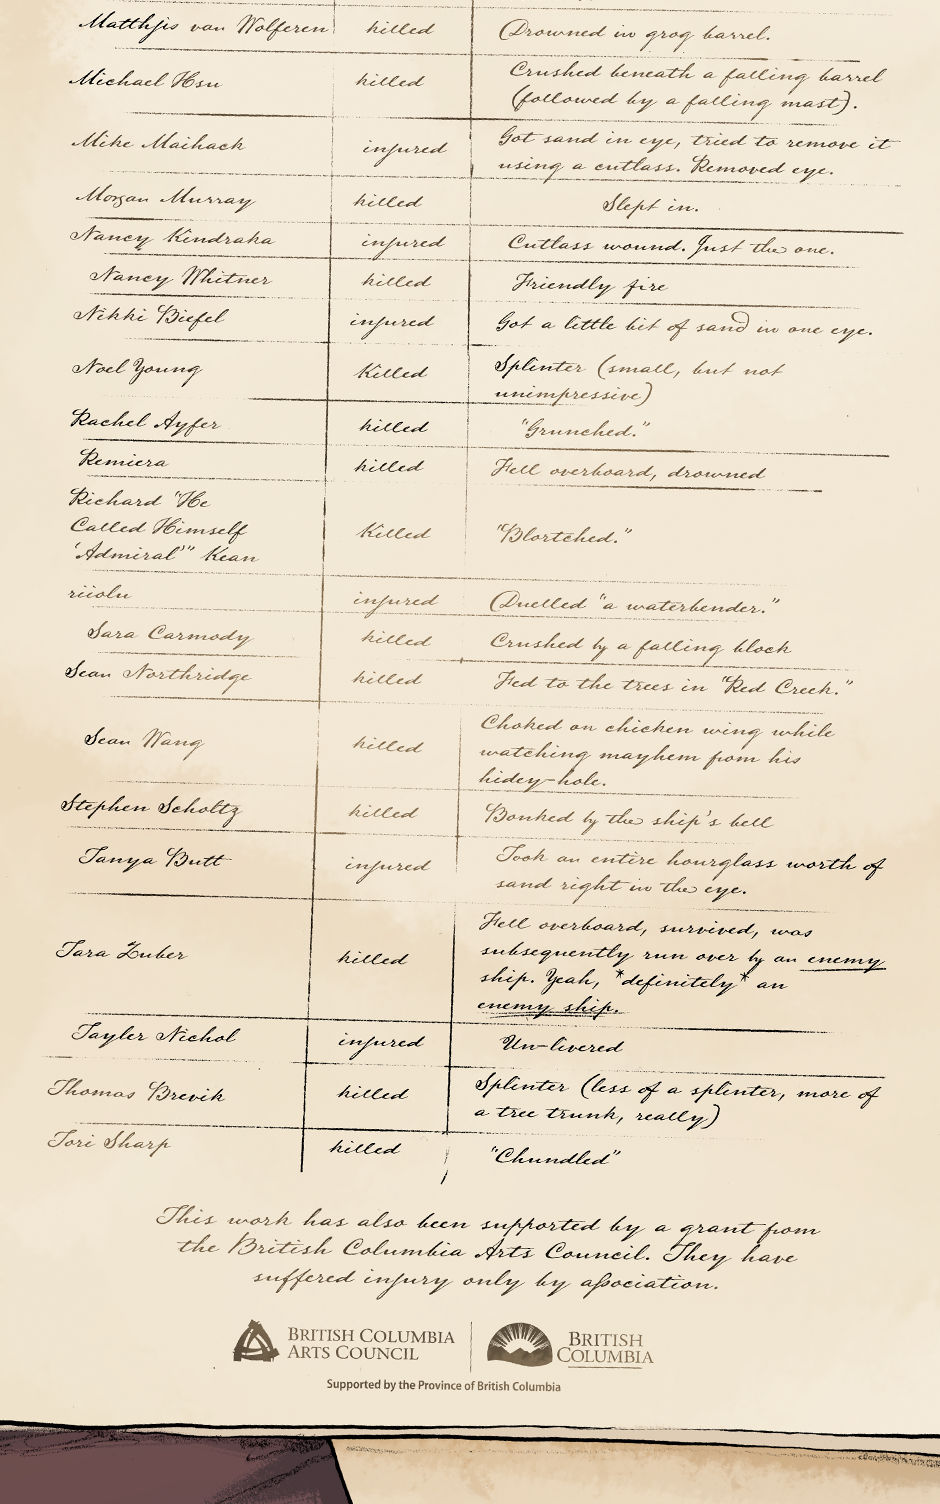 Matthjis van Wolferen killed Drowned in grog barrel.
Michael Hsu killed Crushed beneath a falling barrel
(followed by a falling mast).
Mike Maihack injured Got sand in eye, tried to remove it
using a cutlass. Removed eye.
Morgan Murray killed Slept in.
Nancy Kindraka injured Cutlass wound. Just the one.
Nancy Whitner killed Friendly fire
Nikki Biefel injured Got a little bit of sand in one eye.
Noel Young Killed Splinter (small, but not
unimpressive)
Rachel Ayfer killed "Grunched."
Remiera killed Fell overboard, drowned
Richard "He
Called Himself
'Admiral'" Kean Killed "Blortched."
riiolu injured Duelled "a waterbender."
Sara Carmody killed Crushed by a falling block
Sean Northridge killed Fed to the trees in "Red Creek."
Sean Wang killed Choked on chicken wing while
watching mayhem from his
hidey-hole.
Stephen Scholtz killed Bonked by the ship's bell
Tanya Butt injured Took an entire hourglass worth of
sand right in the eye.
Tara Zuber killed Fell overboard, survived, was
subsequently run over by an enemy
ship. Yeah, *definitely* an
enemy ship.
Tayler Nichol injured Un-livered
Thomas Brevik killed Splinter (less of a splinter, more of
a tree trunk, really)
Tori Sharp killed "Chundled"
This work has also been supported by a grant from
the British Columbia Arts Council. They have
suffered injury only by aſsociation.
BRITISH COLUMBIA
ARTS COUNCIL
BRITISH
COLUMBIA
Supported by the Province of British Columbia